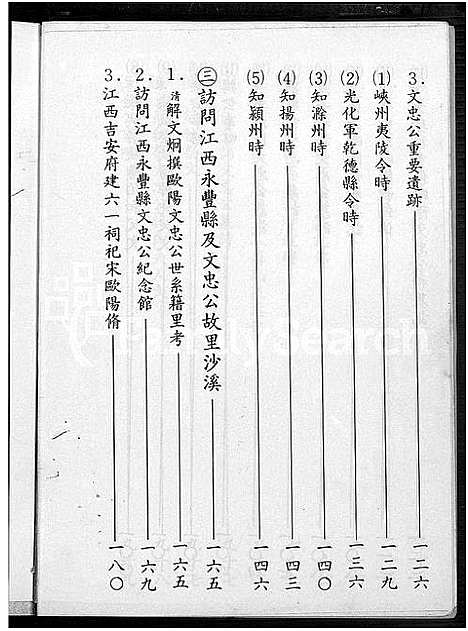 3.文忠公重要遺跡 一二六
(1)峽州夷陵令時 一二九
(2)光化軍乾德縣令時 一三六
(3)知滁州時 一四〇
(4)知揚州時 一四三
(5)知潁州時 一四六
㊂訪問江西永豐縣及文忠公故里沙溪 一六五
1.清解文炯撰歐陽文忠公世系籍里考 一六五
2.訪問江西永豐縣文忠公紀念館 一六九
3.江西吉安府建六一祠祀宋歐陽脩 一八〇